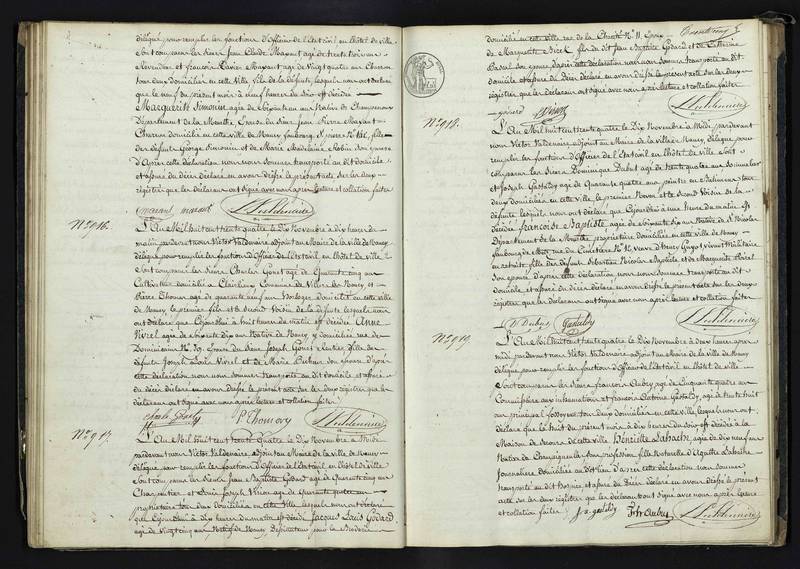 délégué pour remplir les fonctions d'officier de l'État civil en l'hôtel de ville
Sont comparus les sieurs Jean Claude Mayant agé de trente trois ans
Revendeur et François Xavier Mayant agé de vingt quatre ans Charon
tous deux domiciliés en cette ville fils de la défunte, lesquels nous ont déclaré
que le neuf du présent mois à neuf heures du soir est décédée
Marguerite Simonin agée de soixante ans Native de Champenoux
Département de la Meurthe, Épouse du Sieur Jean Pierre Mayant
Charon domicilié en cette ville de Nancy faubourg St pierre fille
des défunts George Simonin et de Marie Madelaine Robin son épouse
D'après cette déclaration nous nous sommes transporté au dit domicile
et assuré du décès déclaré en avons dressé le présent acte sur les deux
régistres que les déclarans ont signé avec nous après lecture et collation faites
mayant mayant
N° 916.
L'An Mil huit cent trente quatre le Dix Novembre à dix heures du
matin pardevant nous Victor Valdenaire adjoint au Maire de la ville de Nancy
délégué pour remplir les fonctions d'officier de l'État civil en l'hôtel de ville
Sont comparus les Sieurs Charles Gonet agé de Quarante cinq ans
Cultivateur domicilié à Clairlieu Commune de Villers les Nancy et
Pierre Thomery agé de quarante neuf ans Horloger domicilié en cette ville
de Nancy, le premier fils et le second Voisin de la défunte lesquels nous
ont déclaré que Cejourd'hui à huit heures du matin est décédée Anne
Virel agée de soixante dix ans Native de Nancy y domiciliée rue des
Dominicains N° 39, Épouse du Sieur Joseph Gonet rentier, fille des
défunts Joseph Virel et de Marie son épouse d'après
cette déclaration nous nous sommes transporté au dit domicile et assuré
du décès déclaré en avons dressé le présent acte sur les deux régistres que les
déclarans ont signé avec nous après lecture et collation faites
P. Thomery
N° 917.
L'An Mil huit cent trente Quatre le Dix Novembre à Midi
pardevant nous Victor Valdenaire, adjoint au Maire de la ville de Nancy
délégué pour remplir les fonctions d'officier de l'État civil en l'hôtel de ville
Sont comparus les Sieurs Jean Baptiste Godard agé de Quarante cinq ans
Charcutier et Louis Joseph Virion agé de Quarante quatre ans
propriétaire tous deux domiciliés en cette ville lesquels nous ont déclaré
que Cejourd'hui à dix heures du matin est décédé Jacques Louis Godard
agé de vingt cinq ans Natif de Nancy, Dessinateur pour la Broderie
domicilié en cette ville rue de la Charité N° 11. Époux
de Marguerite Bicel, fils du dit Jean Baptiste Godard et de Catherine
son épouse, d'après cette déclaration nous nous sommes transporté au dit
domicile et assuré du décès déclaré en avons dressé le présent acte sur les deux
régistres que les déclarans ont signé avec nous après lecture et collation faites
godard Virion
N° 918.
L'An Mil huit cent trente quatre le Dix Novembre à Midi, pardevant
nous Victor Valdenaire, adjoint au Maire de la ville de Nancy, délégué pour
remplir les fonctions d'Officier de l'État civil en l'hôtel de ville Sont
comparus les Sieurs Dominique Dubus agé de trente quatre ans
et Joseph Gastaldy agé de Quarante quatre ans peintre en Bâtimens tous
deux domiciliés en cette ville, le premier Neveu et le second Voisin de la
défunte lesquels nous ont déclaré que Cejourd'hui à une heure du matin est
décédée françoise Baptiste agée de soixante dix ans Native de St Nicolas
Département de la Meurthe, propriétaire domiciliée en cette ville de Nancy
faubourg de Metz rue du Cimetière N° Veuve d'Henry Guyot vivant Militaire
en retraite, fille des défunts Sébastien Nicolas Baptiste et de Marguerite
son épouse d'après cette déclaration nous nous sommes transporté au dit
domicile et assuré du décès déclaré en avons dressé le présent acte sur les deux
régistres que les déclarans ont signé avec nous après lecture et collation faites
D Dubus Gastaldy
N° 919.
L'An Mil huit cent trente quatre le Dix Novembre à deux heures après
midi, pardevant nous Victor Valdenaire, adjoint au Maire de la ville de Nancy
délégué pour remplir les fonctions d'officier de l'État civil en l'hôtel de ville
Sont comparus les Sieurs françois Aubry agé de Cinquante quatre ans
Commissaire aux inhumations et Jean Antoine Gastaldy, agé de trente huit
ans principal fossoyeur tous deux domiciliés en cette ville, lesquels nous ont
déclaré que le huit du présent mois à dix heures du soir est décédée à la
Maison de Secours de cette ville Henriette Labache, agée de dix neuf ans
Native de Champigneulles sans profession, fille Naturelle de Agathe Labache
Journalière domiciliée au dit lieu d'après cette déclaration nous sommes
transporté au dit Hospice et assuré du Décès déclaré en avons dressé le présent
acte sur les deux régistres que les déclarans ont signé avec nous après lecture
et collation faites j. a. gastaldy Fs Aubry